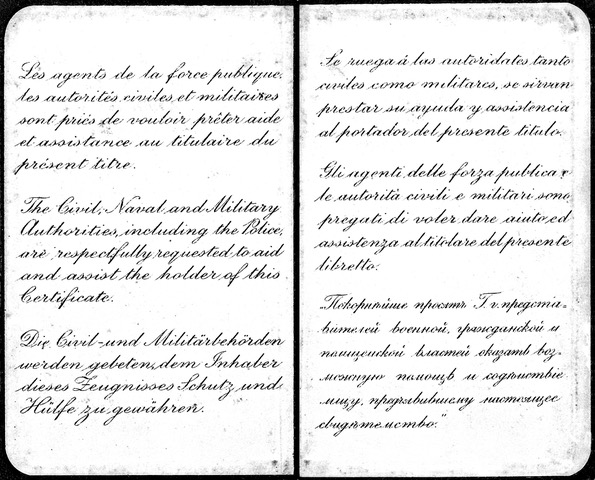 Les agents de la force publique,
les autorités civiles et militaires
sont priés de vouloir prêter aide
et assistance au titulaire du
présent titre.
The Civil, Naval and Military
Authorities, including the Police,
are respectfully requested to aid
and assist the holder of this
Certificate.
Die Civil- und Militärbehörden
werden gebeten, dem Inhaber
dieses Zeugnisses Schutz und
Hülfe zu gewähren.
Se ruega á las autoridates tanto
civiles como militares, se sirvan
prestar su ayuda y assistencia
al portador del presente titulo.
Gli agenti delle forza publica e
le autorità civili e militari sono
pregati di voler dare aiuto ed
assistenza al titolare del presente
libretto.
„Покорнѣйше просятъ Г.г. предста-
вителей военной, гражданской и
полицейской властей оказать воз-
можную помощь и содѣйствіе
лицу, предъявившему настоящее
свидѣтельство."